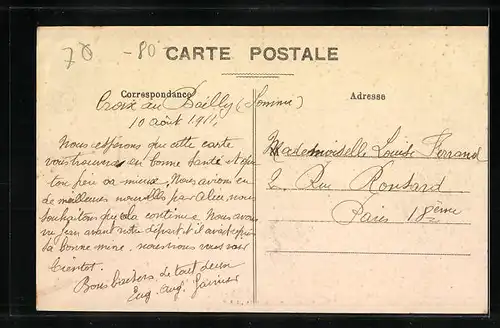 70
- 80
CARTE POSTALE
Correspondance
Adresse
Croix au Bailly (Somme)
10 août 1911,
Nous espérons que cette carte
vous trouvera en bonne santé et que
ton père va mieux. Nous avions eu
de meilleures nouvelles par Alice, nous
souhaitons que cela continue. Nous avons
vu Jean avant notre départ et il avait repris
sa bonne mine, nous vous
bientôt.
Bons baisers de tout cœur
Eug. Aug.
Mademoiselle Louise Ferrand
2, Rue Ronsard
Paris 18ème